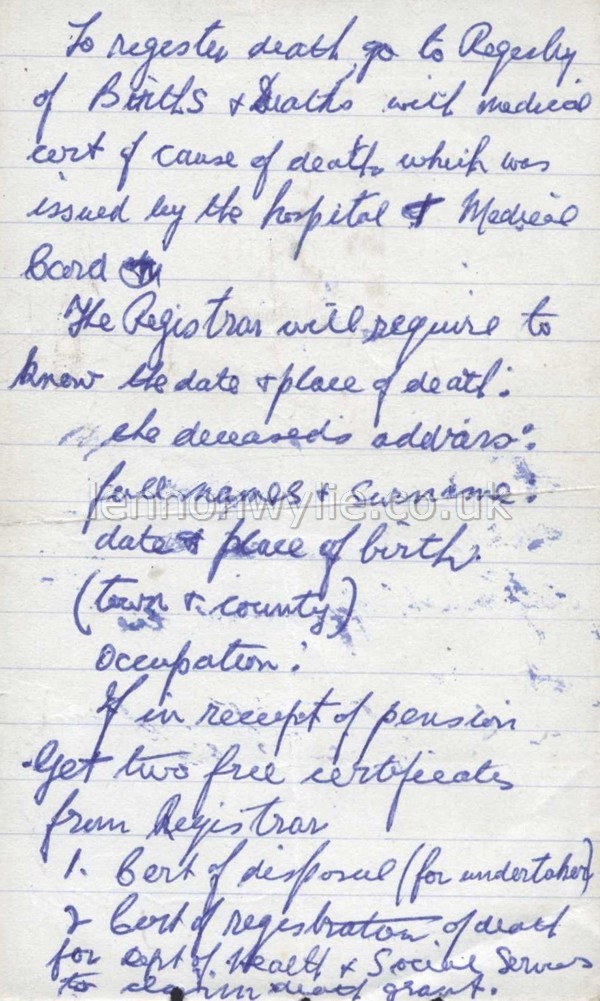 To register death go to Registry
of Births & Deaths with medical
cert of cause of death which was
issued by the hospital & Medical
Card
The Registrar will require to
know the date & place of death:
the deceased's address:
full names & surname:
lennonwylie.co.uk
date & place of birth
(town & county)
Occupation:
If in receipt of pension
Get two free certificates
from Registrar
1. Cert of disposal (for undertaker)
2 Cert of registration of death
for Dept of Health & Social Services
to claim death grant.